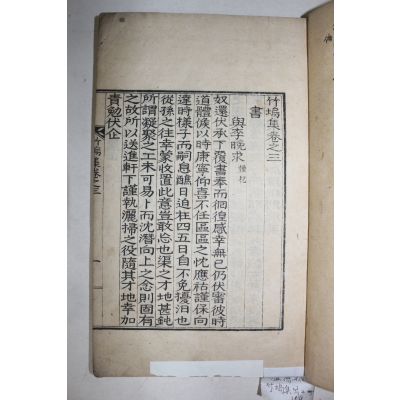 竹塢集卷之三
書
與李晚求 種杞
奴還伏承下覆書奉而徊徨感幸無已仍伏審彼時
道體候以時康寧仰喜不任區區之忱應祜謹保向
達時樣子而嗣息醮日迫在四五日自不免擾汨也
從孫之往幸蒙收置此意豈敢忘也渠之才地甚鈍
所謂凝聚之工未可易卜而沈潛向上之念則固有
之故所以送進軒下謹執灑掃之役隨其才地幸加
責勉伏企
竹塢集卷之三
一
竹塢集